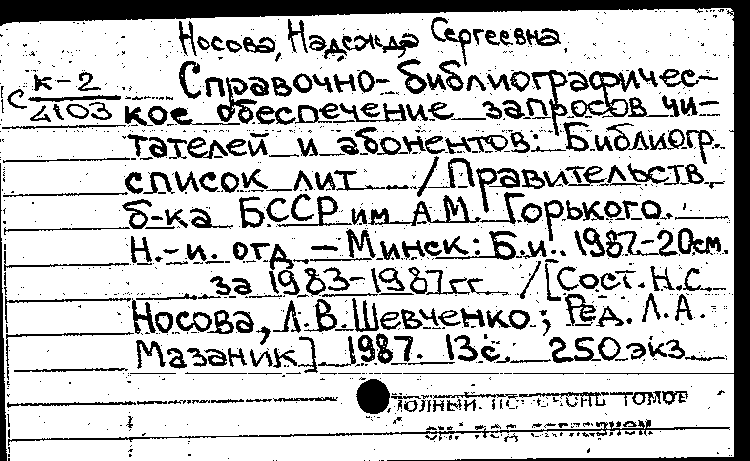 Носова, Надежда Сергеевна
К-2 Справочно-библиографичес-
С 4103 кое обеспечение запросов чи-
тателей и абонентов: Библиогр.
список лит ... / Правительств.
б-ка БССР им А.М. Горького.
Н.-и. отд. — Минск: Б.и. 1987.-20см.
... за 1983-1987гг. / [Сост. Н.С.
Носова, Л.В. Шевченко; Ред. Л.А.
Мазаник] 1987. 13с. 250экз.
ПОЛНЫЙ ПЕРЕЧЕНЬ ТОМОВ
СМ. ПОД ЗАГЛАВИЕМ